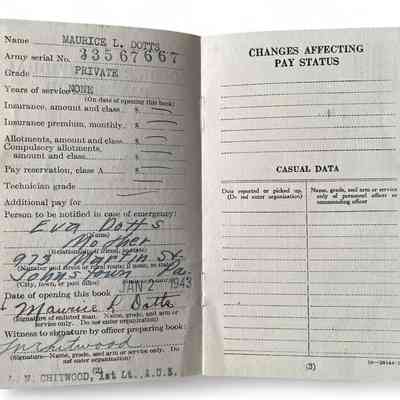 Name MAURICE L. DOTTS
Army serial No. 33567667
Grade PRIVATE
Years of service NONE
(On date of opening this book)
Insurance, amount and class $
Insurance premium, monthly $
Allotments, amount and class $
Compulsory allotments,
amount and class $
Pay reservation, class A $
Technician grade
Additional pay for
Person to be notified in case of emergency:
Eva Dotts
(Name)
Mother
(Relationship; if friend, so state)
973 Martin St.
(Number and street or rural route; if none, so state)
Johnstown Pa.
(City, town, or post office)
Date of opening this book JAN 2 1943
Maurice L Dotts
(Signature of enlisted man. Name, grade, and arm or
service only. Do not enter organization)
Witness to signature by officer preparing book:
Chitwood
(Signature—Name, grade, and arm or service only. Do
not enter organization)
(2)
W CHITWOOD, 1st Lt., A.U.S.
CHANGES AFFECTING
PAY STATUS
CASUAL DATA
Date reported or picked up.
(Do not enter organization)
Name, grade, and arm or service
only of personnel officer or
commanding officer
(3)